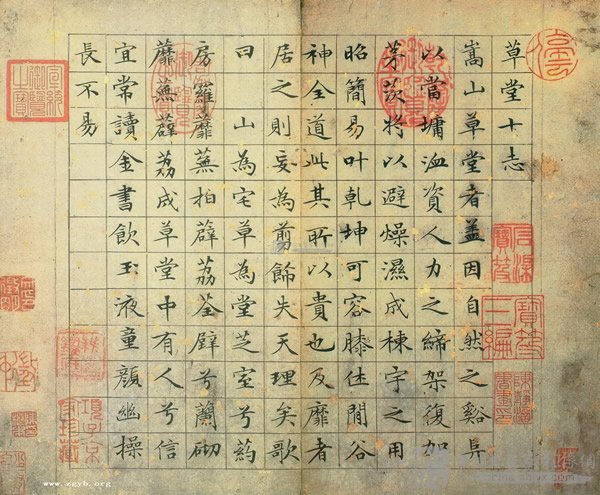 草堂十志
嵩山草堂者盖因自然之谿阜
以當墉洫資人力之締架復加
茅茨將以避燥濕成棟宇之用
昭簡易叶乾坤可容膝休閒谷
神全道此其所以貴也及靡者
居之則妄為剪飾失天理矣歌
曰 山為宅草為堂芝室兮葯
房羅蘼蕪拍薜荔荃壁兮蘭砌
蘼蕪薜荔成草堂中有人兮信
宜常讀金書飲玉液童顏幽操
長不易
www.zgyb.org